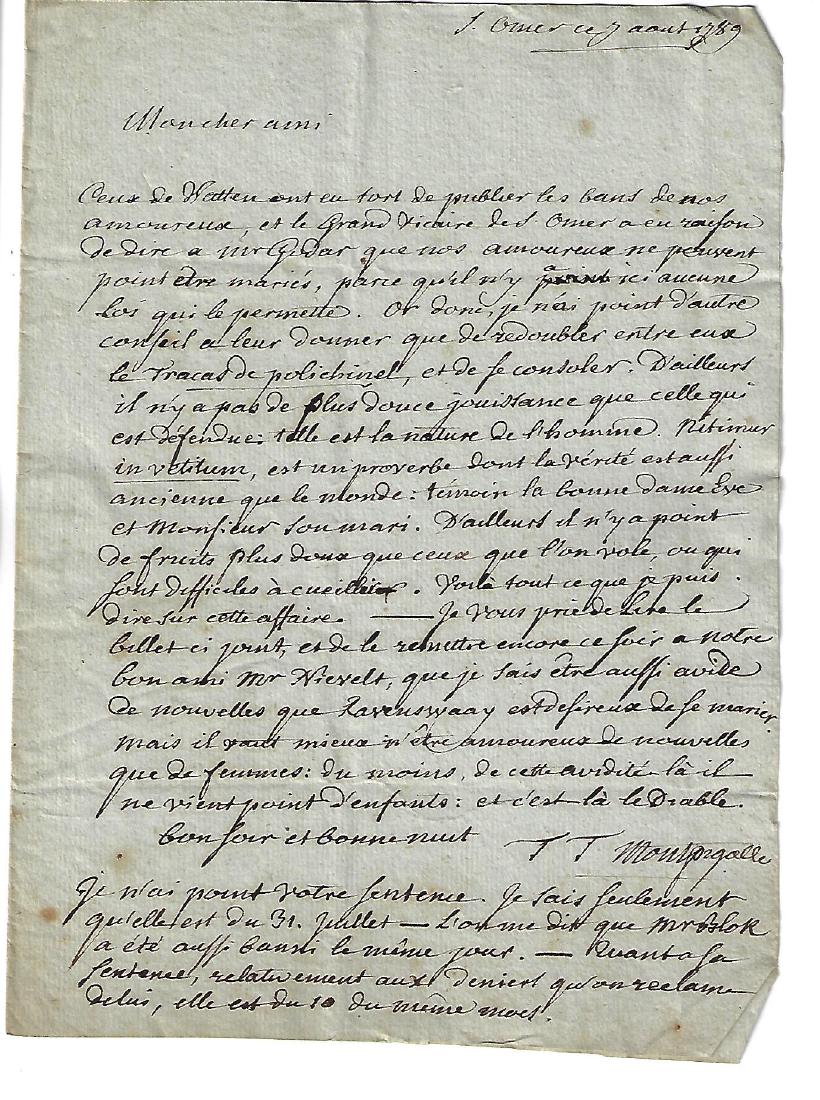 S. Omer ce 7 aout 1789
Mon cher ami
Ceux de Watten ont eu tort de publier les bans de nos
amoureux, et le Grand Vicaire de S. Omer a eu raison
de dire a Mr que nos amoureux ne peuvent
point être mariés, parce qu'il n'y a ici aucune
Loi qui le permette. Or donc, je n'ai point d'autre
conseil a leur donner que de redoubler entre eux
le Tracas de polichinel, et de se consoler. D'ailleurs
il n'y a pas de plus douce jouissance que celle qui
est défendue: telle est la nature de l'homme. Nitimur
in vetitum, est un proverbe dont la vérité est aussi
ancienne que le monde: témoin la bonne dame Eve
et Monsieur son mari. D'ailleurs il n'y a point
de fruits plus doux que ceux que l'on vole, ou qui
sont difficiles à cueillir. Voilà tout ce que je puis
dire sur cette affaire. — Je vous prie de Lire le
billet ci joint, et de le remettre encore ce soir a notre
bon ami Mr Nievelt, que je sais être aussi avide
de nouvelles que Ravenswaay est desireux de se marier.
Mais il vaut mieux n'être amoureux de nouvelles
que de femmes: du moins, de cette avidité-là il
ne vient point d'enfants: et c'est là le Diable.
bon soir et bonne nuit
T T
Je n'ai point votre sentence. Je sais seulement
qu'elle est du 31. Juillet — L'on me dit que Mr Blok
a été aussi banni le même jour. — Quant a sa
sentence, relativement aux deniers qu'on reclame
de lui, elle est du 10 du même mois.